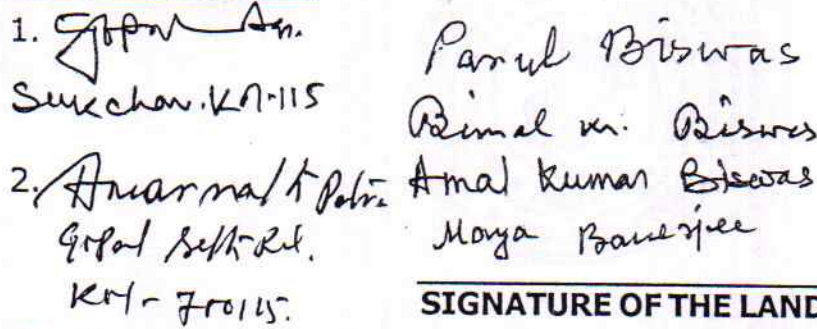 1. Gopal Das.
Sukchar. Kol-115
2. Amarnath Patra
Gopal Seth Rd.
Kol - 700115.
Parul Biswas
Bimal Kr. Biswas
Amal Kumar Biswas
Maya Banerjee
SIGNATURE OF THE LAND